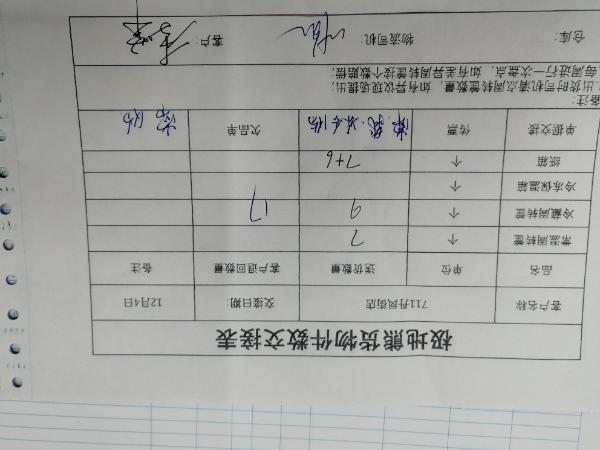 极地熊货物件数交接表
客户名称 711丹凤街店 交接日期: 12月4日
品名 单位 送货数量 客户退回数量 备注
常温周转筐 个 7
冷藏周转筐 个 9 17
冷冻保温箱 个
纸箱 个 7+6
单据交接 传票 欠品单
备注:
1.出货时司机清点周转筐数量，如有异议现场提出；
2.每周进行一次盘点，如有差异周转筐按个数赔偿；
仓库: 物流司机: 客户: